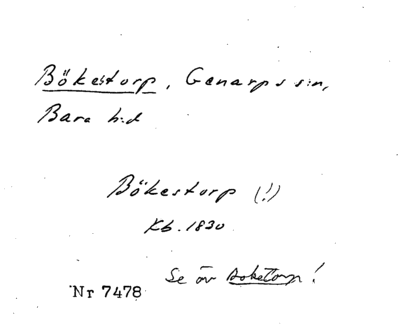 Bökestorp, Genarps s:n,
Bara h:d
Bökestorp (!)
Kb. 1830
Se äv Boketorp!
Nr 7478